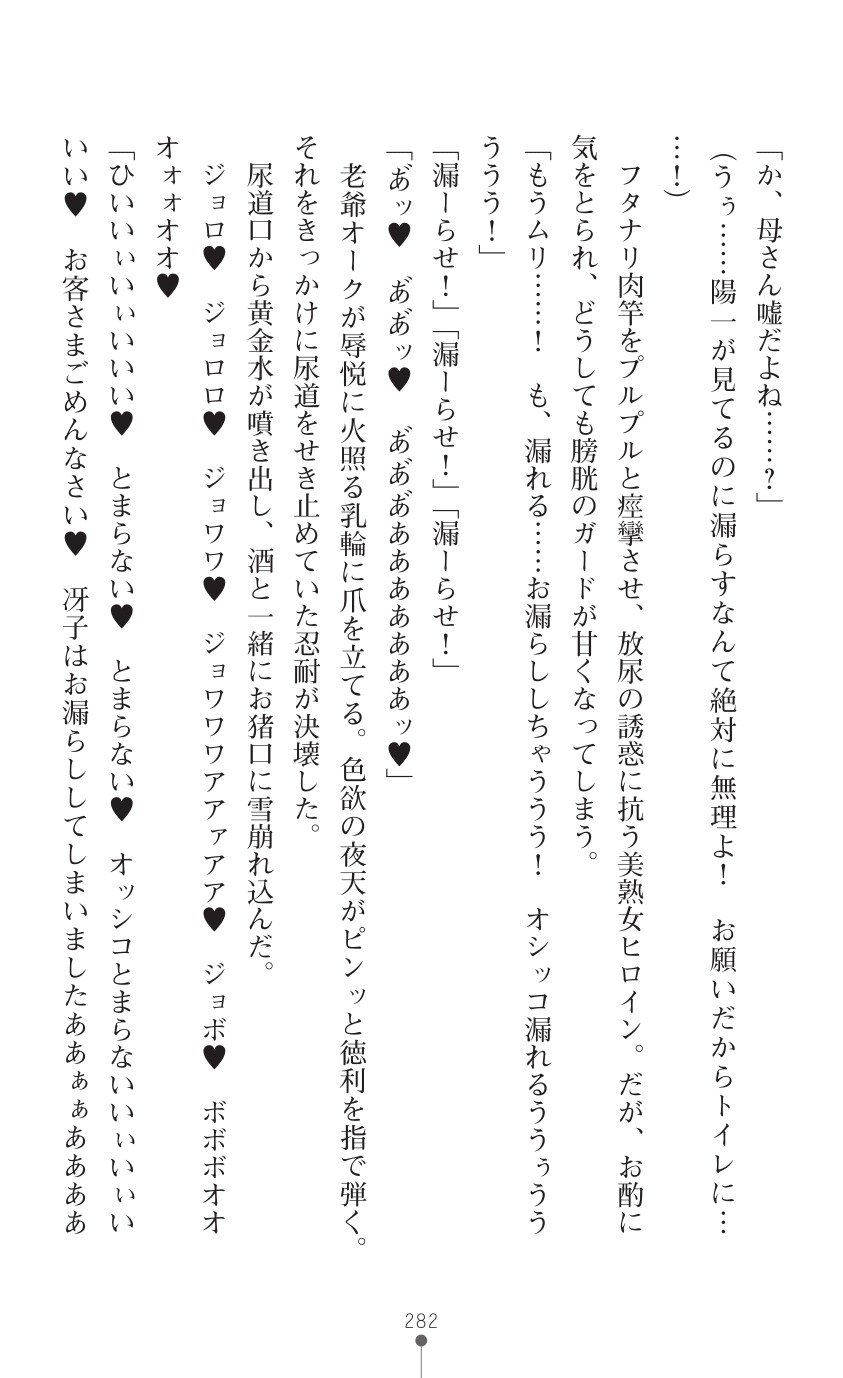 「か、母さん嘘だよね……？」
（うぅ……陽一が見てるのに漏らすなんて絶対に無理よ！　お願いだからトイレに…
…！）
　フタナリ肉竿をプルプルと痙攣させ、放尿の誘惑に抗う美熟女ヒロイン。だが、お酌に
気をとられ、どうしても膀胱のガードが甘くなってしまう。
「もうムリ……！　も、漏れる……お漏らししちゃううう！　オシッコ漏れるううぅうう
ううう！」
「漏ーらせ！」「漏ーらせ！」「漏ーらせ！」
「あ゛ッ♥　あ゛あ゛ッ♥　あ゛あ゛あ゛あああああああッ♥」
　老爺オークが辱悦に火照る乳輪に爪を立てる。色欲の夜天がピンッと徳利を指で弾く。
それをきっかけに尿道をせき止めていた忍耐が決壊した。
　尿道口から黄金水が噴き出し、酒と一緒にお猪口に雪崩れ込んだ。
　ジョロ♥　ジョロロ♥　ジョワワ♥　ジョワワワアアァアア♥　ジョボ♥　ボボボオオ
オォォオオ♥
「ひいいぃいぃいいい♥　とまらない♥　とまらない♥　オッシコとまらないいぃいぃい
いい♥　お客さまごめんなさい♥　冴子はお漏らししてしまいましたああぁぁああああ
282